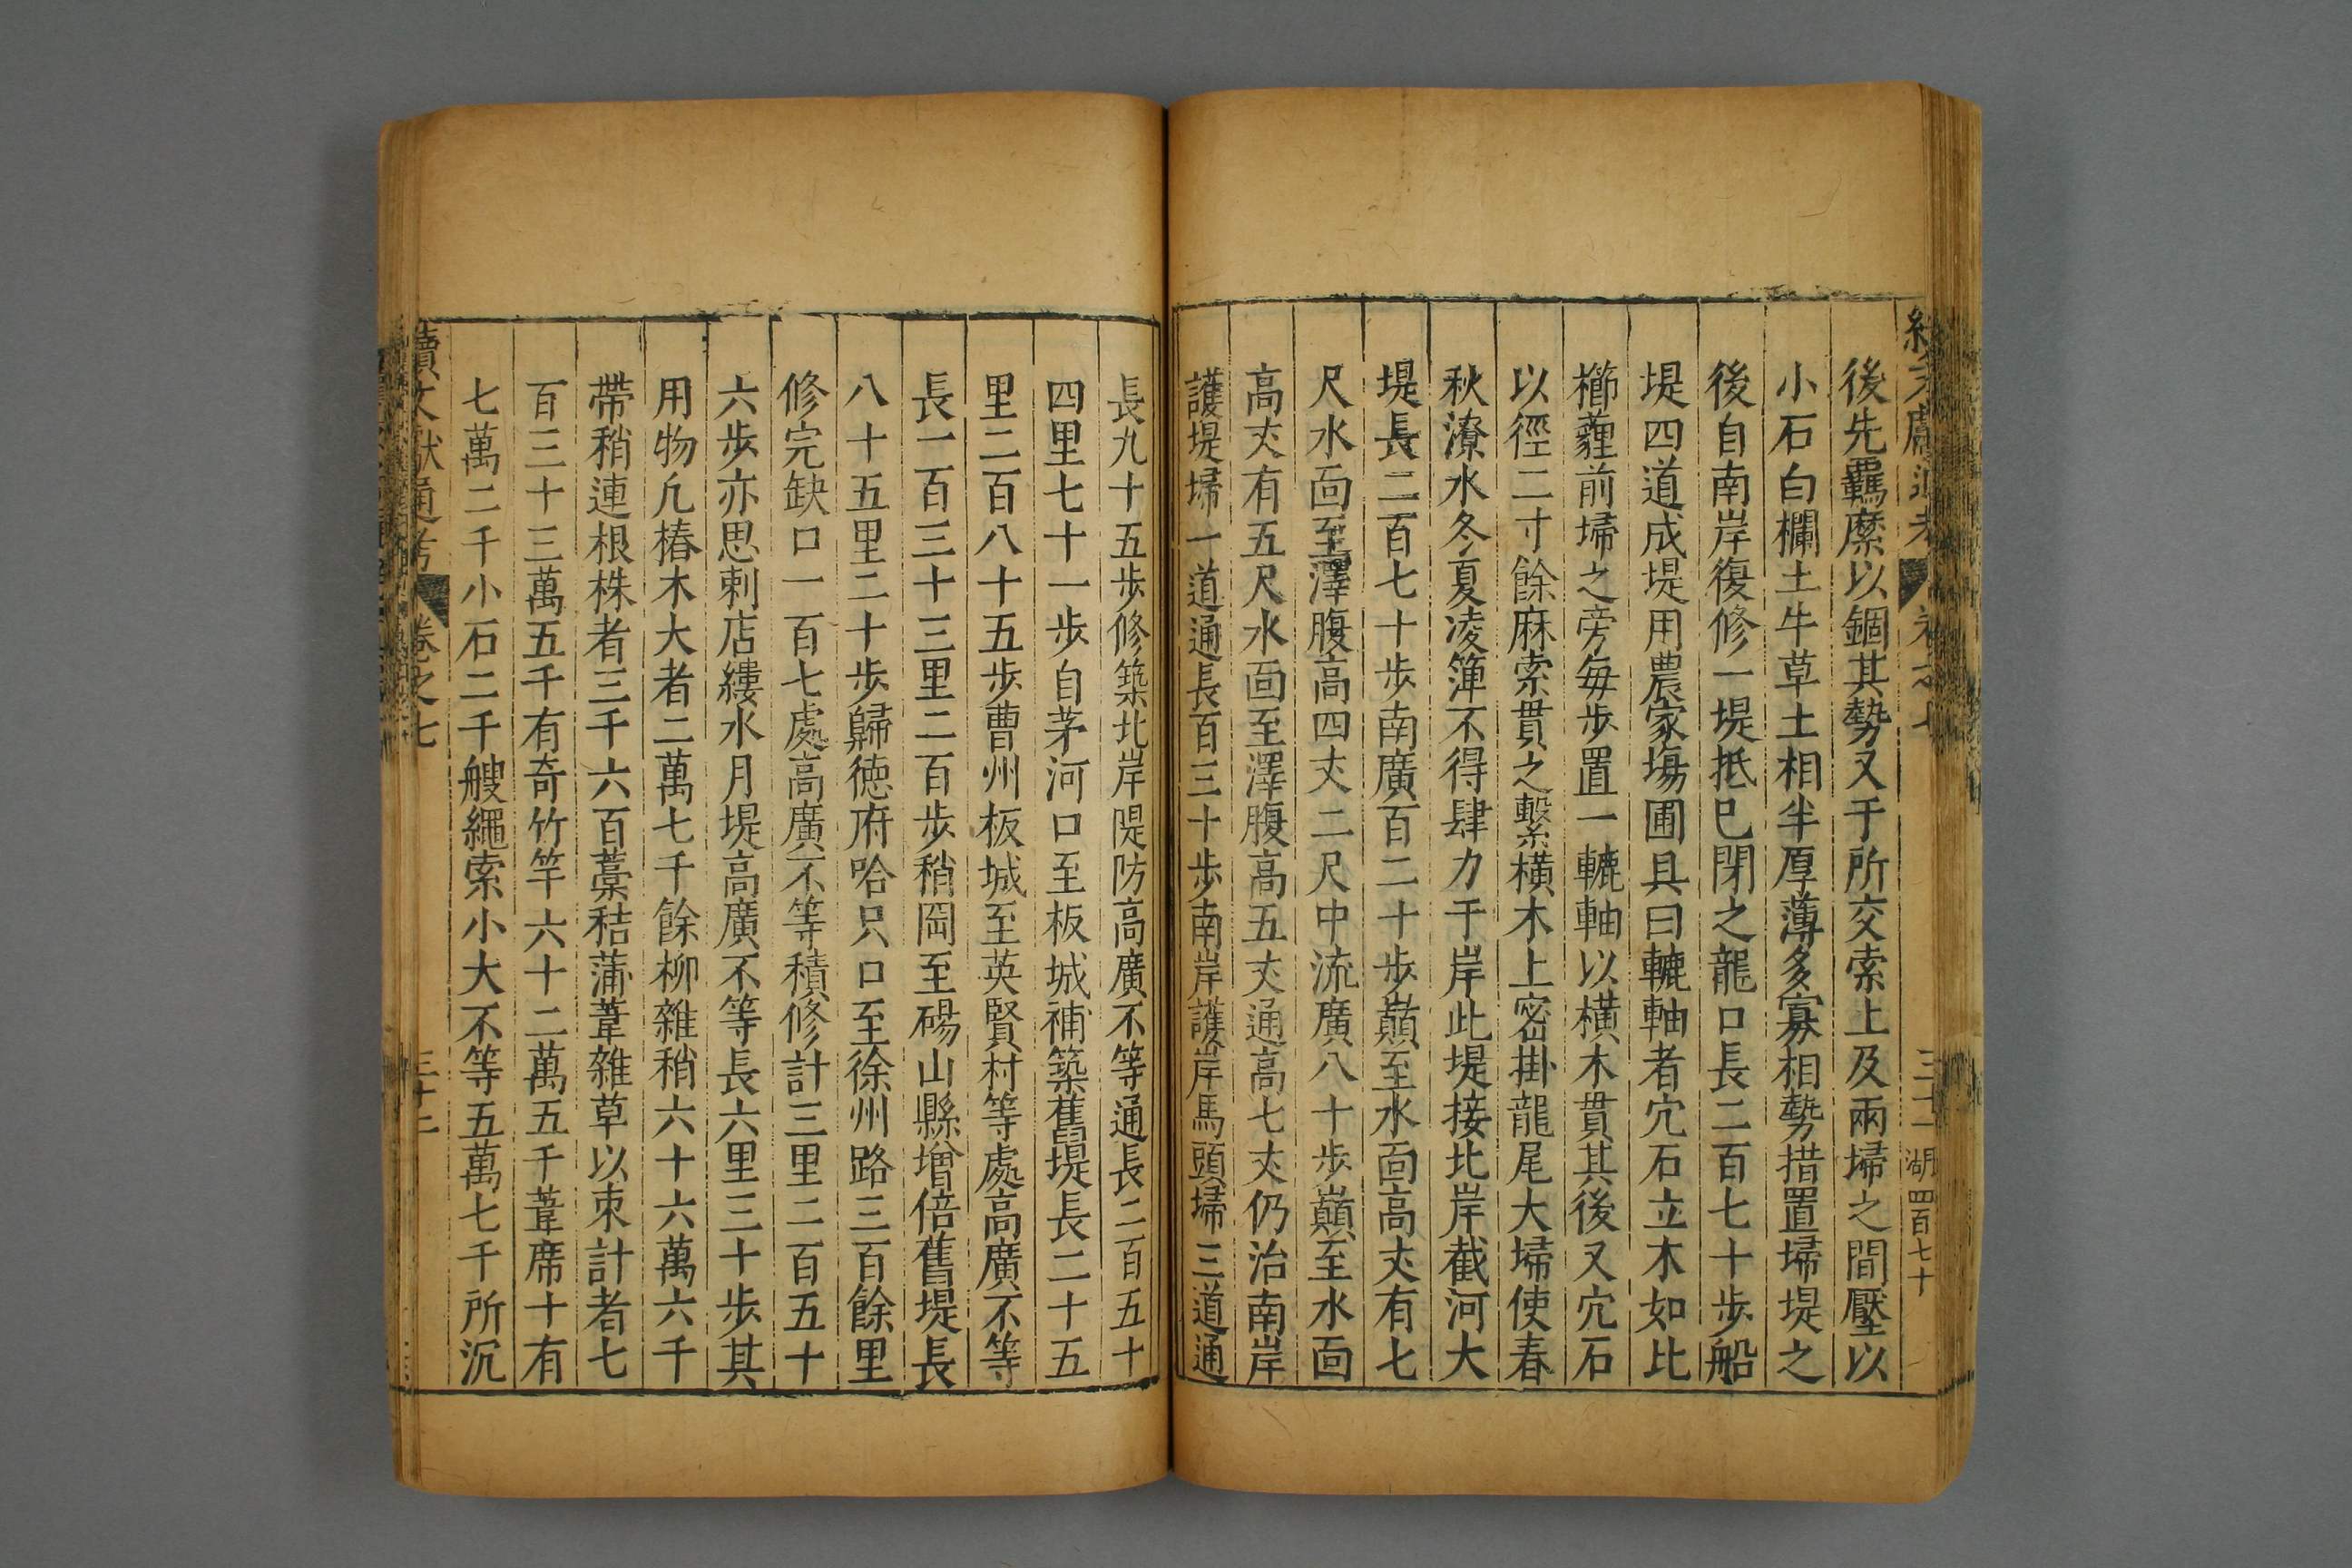 後先羈縻以錮其勢又于所交索上及兩埽之間壓以
小石白欄土牛草土相半厚薄多寡相勢措置埽堤之
後自南岸復修一堤抵巳閉之龍口長二百七十步船
堤四道成堤用農家塲圃具曰轆軸者穴石立木如比
櫛薶前埽之旁每步置一轆軸以橫木貫其後又穴石
以徑二寸餘麻索貫之繫橫木上密掛龍尾大埽使春
秋潦水冬夏凌簰不得肆力于岸此堤接北岸截河大
堤長二百七十步南廣百二十步巔至水面高丈有七
尺水面至澤腹高四丈二尺中流廣八十步巔至水面
高丈有五尺水面至澤腹高五丈通高七丈仍治南岸
護堤埽一道通長百三十步南岸護岸馬頭埽三道通
長九十五步修築北岸隄防高廣不等通長二百五十
四里七十一步自茅河口至板城補築舊堤長二十五
里二百八十五步曹州板城至英賢村等處高廣不等
長一百三十三里二百步稍岡至碭山縣增倍舊堤長
八十五里二十步歸德府哈只口至徐州路三百餘里
修完缺口一百七處高廣不等積修計三里二百五十
六步亦思剌店縷水月堤高廣不等長六里三十步其
用物凣樁木大者二萬七千餘柳雜稍六十六萬六千
帶稍連根株者三千六百藁秸蒲葦雜草以束計者七
百三十三萬五千有奇竹竿六十二萬五千葦席十有
七萬二千小石二千艘繩索小大不等五萬七千所沉
續文獻通考
卷之七
湖四百七十